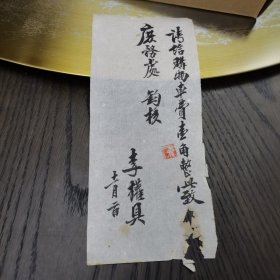 請給購物車費壹角整此致
庶務處 鈞核
李權具
十一月 日